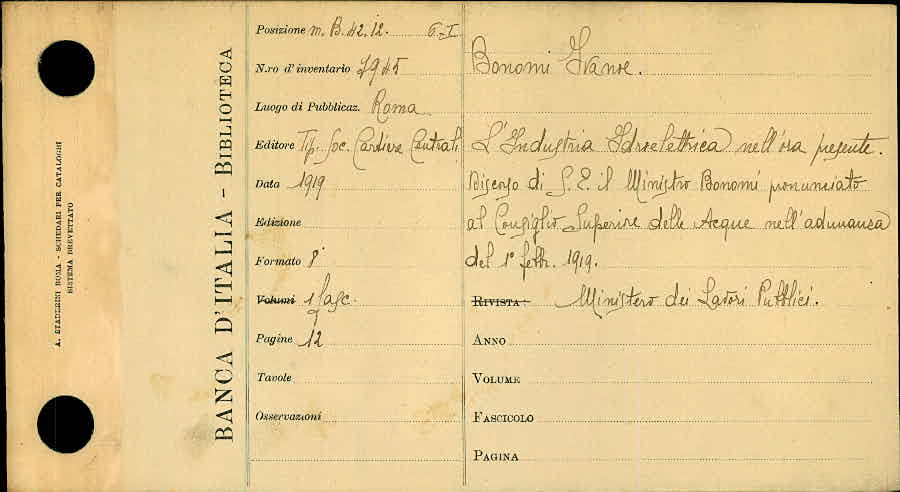 A. STADERINI ROMA - SCHEDARI PER CATALOGHI
SISTEMA BREVETTATO
BANCA D'ITALIA - BIBLIOTECA
Posizione m. B. 42. 12. 6-I
N.ro d'inventario 7945
Luogo di Pubblicaz. Roma
Editore Tip. Soc. Cartiere Centrali
Data 1919
Edizione
Formato 8°
Volumi 1 fasc.
Pagine 12
Tavole
Osservazioni
Bonomi Ivanoe.
L'Industria Idroelettrica nell'ora presente.
Discorso di S. E. il Ministro Bonomi pronunciato
al Consiglio Superiore delle Acque nell'adunanza
del 1° febbr. 1919.
RIVISTA: Ministero dei Lavori Pubblici.
ANNO
VOLUME
FASCICOLO
PAGINA